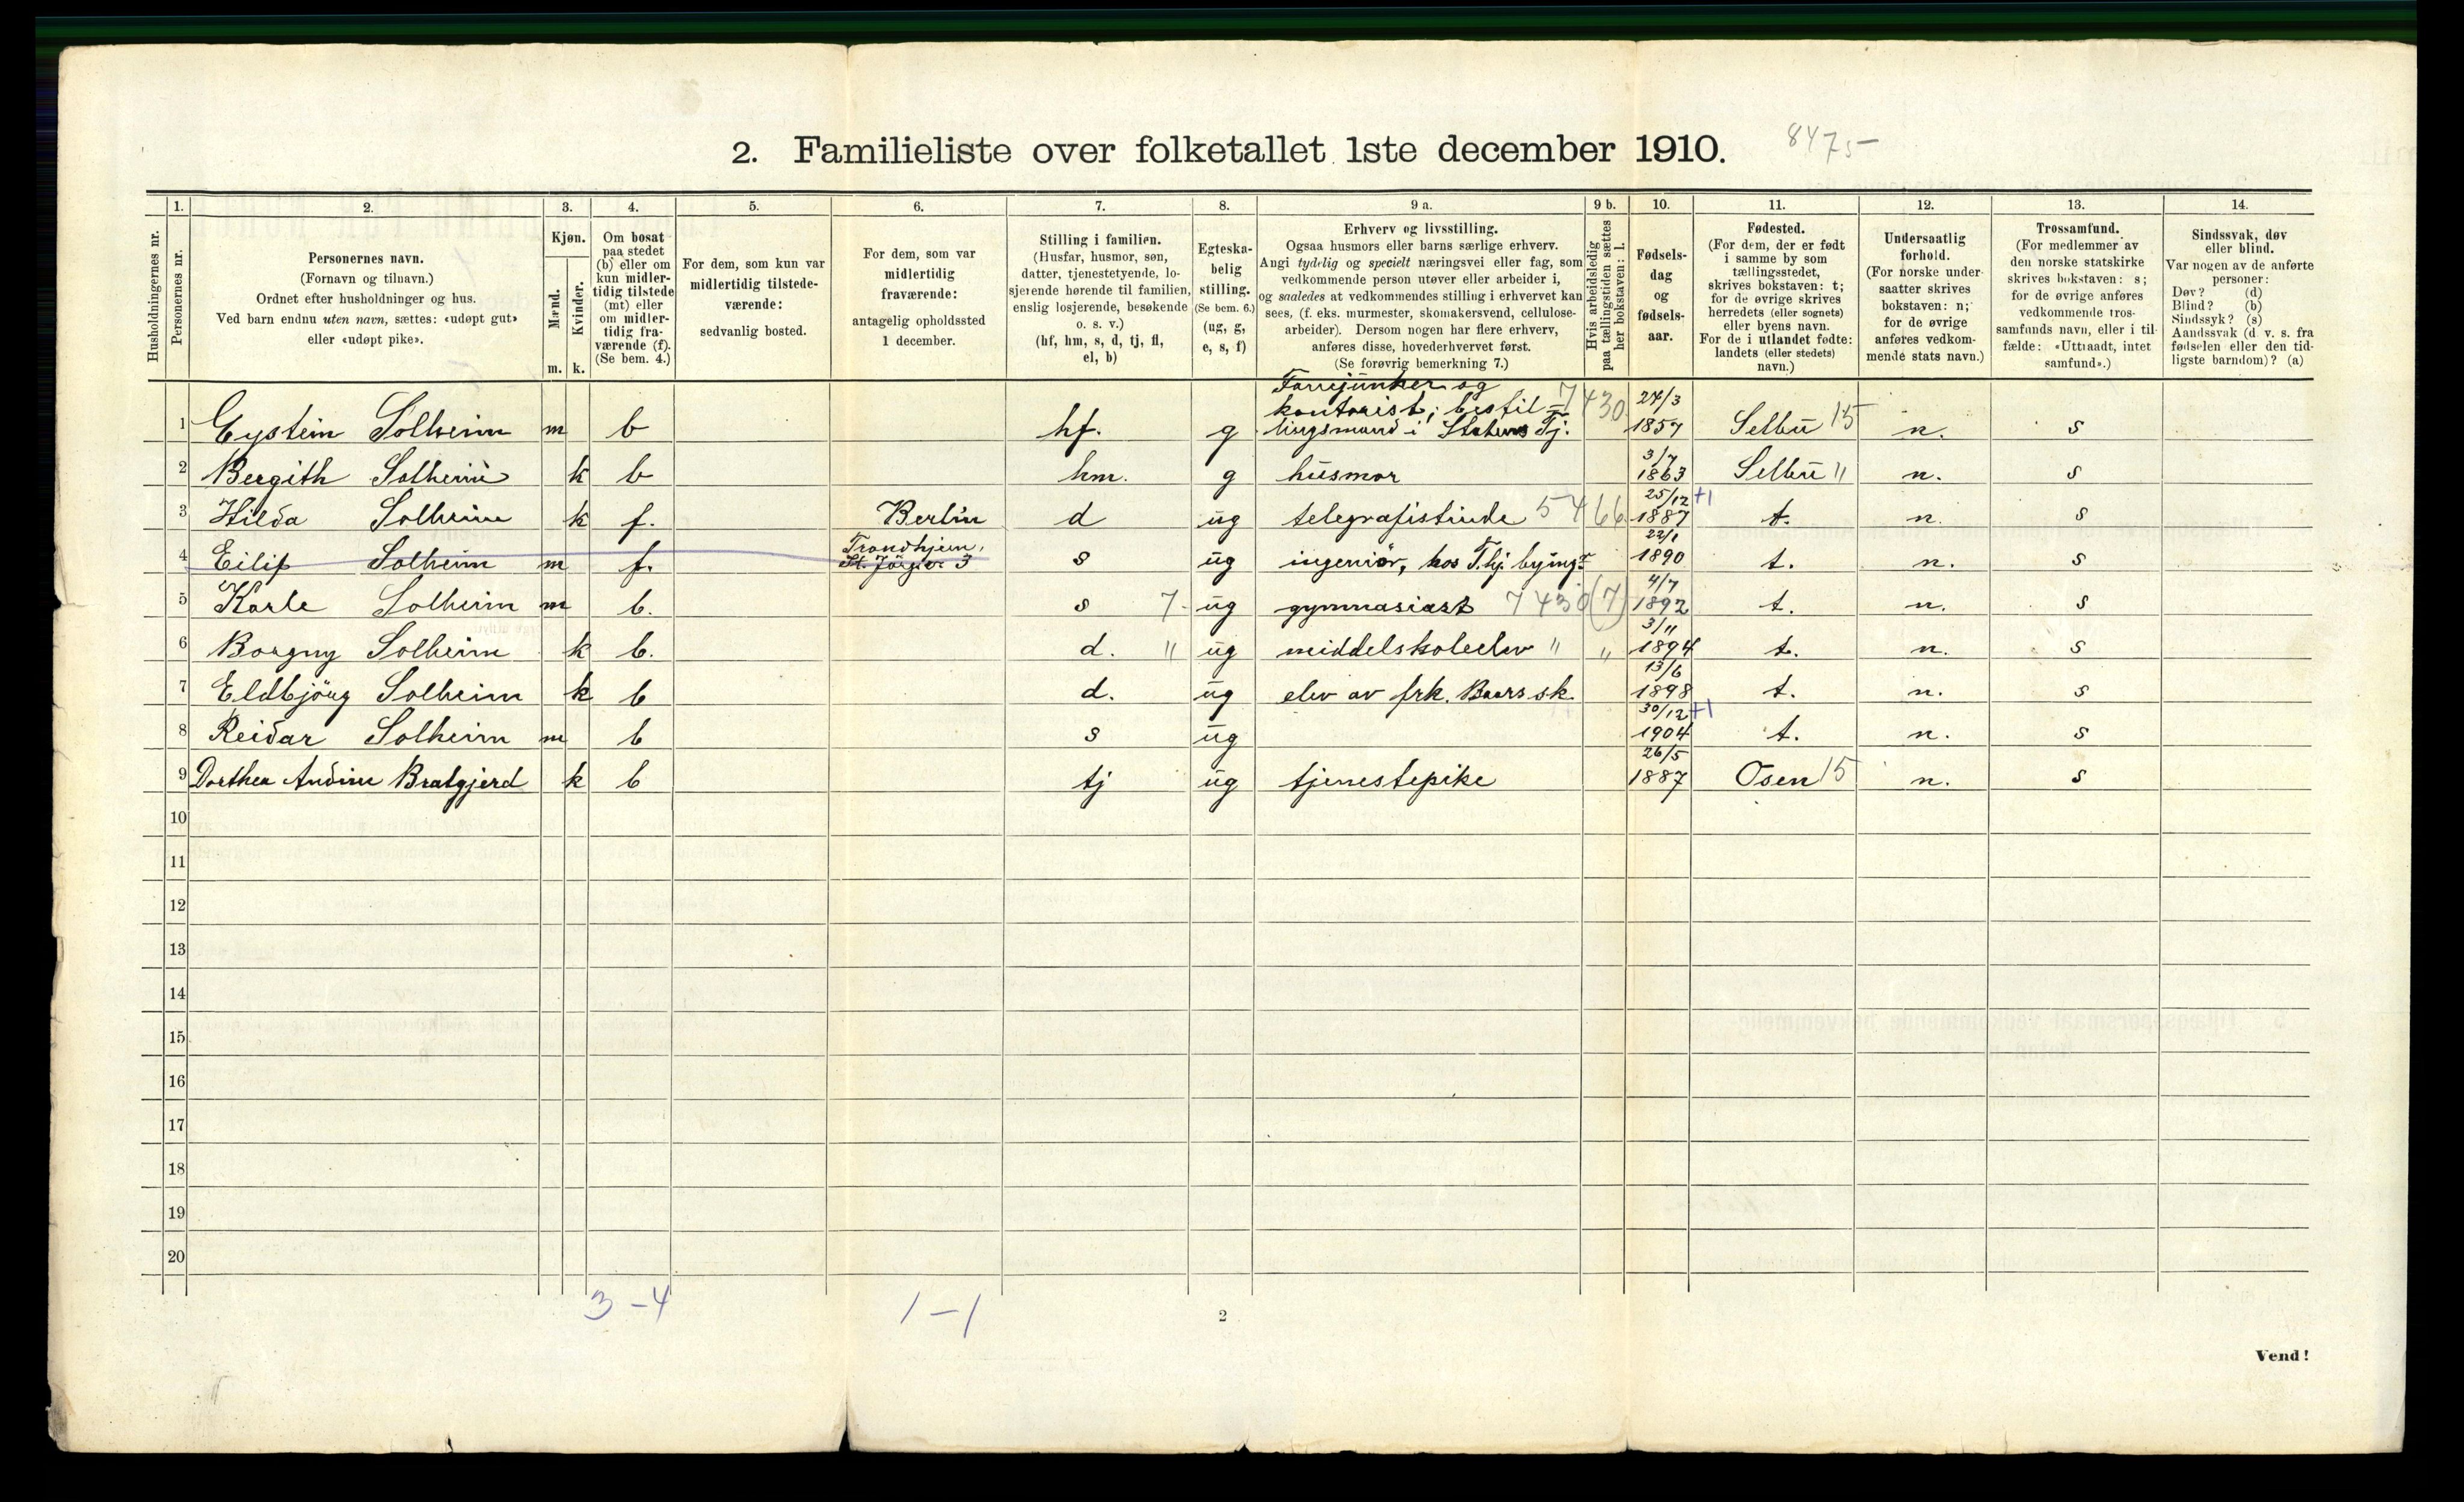 2. Familieliste over folketallet 1ste december 1910. 8475-
Husholdningernes nr.
1. Personernes nr.
2. Personernes navn.
(Fornavn og tilnavn.)
Ordnet efter husholdninger og hus.
Ved barn endnu uten navn, sættes: «udøpt gut»
eller «udøpt pike».
3. Kjøn.
Mænd. Kvinder.
m. k.
4. Om bosat
paa stedet
(b) eller om
kun midler-
tidig tilstede
(mt) eller
om midler-
tidig fra-
værende (f).
(Se bem. 4.)
5. For dem, som kun var
midlertidig tilstede-
værende:
sedvanlig bosted.
6. For dem, som var
midlertidig
fraværende:
antagelig opholdssted
1 december.
7. Stilling i familien.
(Husfar, husmor, søn,
datter, tjenestetyende, lo-
sjerende hørende til familien,
enslig losjerende, besøkende
o. s. v.)
(hf, hm, s, d, tj, fl,
el, b)
8. Egteska-
belig
stilling.
(Se bem. 6.)
(ug, g,
e, s, f)
9 a. Erhverv og livsstilling.
Ogsaa husmors eller barns særlige erhverv.
Angi tydelig og specielt næringsvei eller fag, som
vedkommende person utøver eller arbeider i,
og saaledes at vedkommendes stilling i erhvervet kan
sees, (f. eks. murmester, skomakersvend, cellulose-
arbeider). Dersom nogen har flere erhverv,
anføres disse, hovederhvervet først.
(Se forøvrig bemerkning 7.)
9 b. Hvis arbeidsledig
paa tællingstiden sættes
her bokstaven: l.
10. Fødsels-
dag
og
fødsels-
aar.
11. Fødested.
(For dem, der er født
i samme by som
tællingsstedet,
skrives bokstaven: t;
for de øvrige skrives
herredets (eller sognets)
eller byens navn.
For de i utlandet fødte:
landets (eller stedets)
navn.)
12. Undersaatlig
forhold.
(For norske under-
saatter skrives
bokstaven: n;
for de øvrige
anføres vedkom-
mende stats navn.)
13. Trossamfund.
(For medlemmer av
den norske statskirke
skrives bokstaven: s;
for de øvrige anføres
vedkommende tros-
samfunds navn, eller i til-
fælde: «Uttraadt, intet
samfund».)
14. Sindssvak, døv
eller blind.
Var nogen av de anførte
personer:
Døv? (d)
Blind? (b)
Sindssyk? (s)
Aandssvak (d. v. s. fra
fødselen eller den tid-
ligste barndom)? (a)
1 Eystein Solheim m b hf. g Fanejunker og kontorist; bestil= lingsmand i Statens Tj. 7430 27/3 1857 Selbu 15 n. s
2 Bergith Solheim k b hm. g husmor 3/7 1863 Selbu " n. s
3 Hilda Solheim k f. Berlin d ug telegrafistinde 5466 25/12 +1 1887 t. n. s
4 Eilif Solheim m f. Trondhjem, St. Jörgsv 3 s ug ingeniör, hos T.hj. bying. 22/1 1890 t. n. s
5 Karle Solheim m b. s 7- ug gymnasiast 7430 (7) 4/7 1892 t. n. s
6 Borgny Solheim k b. d. " ug middelskoleelev " " 3/11 1894 t. n. s
7 Eldbjörg Solheim k b d. ug elev av frk. Baars sk. 13/6 1898 t. n. s
8 Reidar Solheim m b s ug 30/12 +1 1904 t. n. s
9 Dorthea Andine Bratgjerd k b tj ug tjenestepike 26/5 1887 Osen 15 n. s
10
11
12
13
14
15
16
17
18
19
20
3-4 1-1
2
Vend!